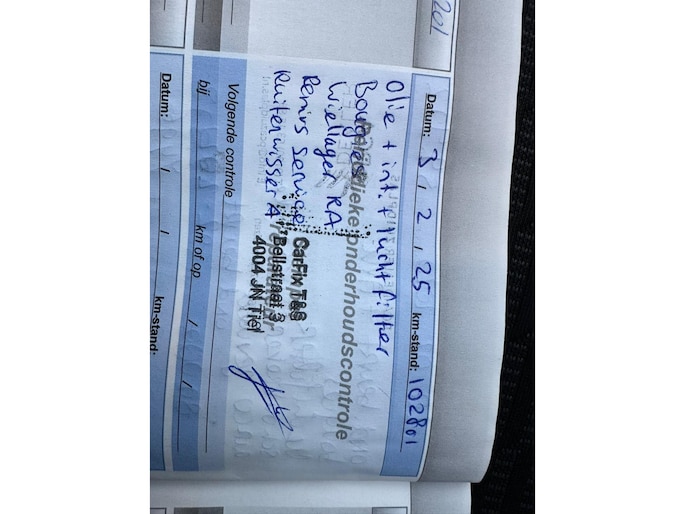 201
Datum: 3 / 2 / 25 km-stand: 102801
Periodieke onderhoudscontrole
Olie + int. + lucht filter
Bougies
Wiellager RA
Remvs Service
Ruitenwisser A
CarFix T&S
Bellstraat 3
4004 JN Tiel
Volgende controle
bij km of op / /
Datum: / / km-stand: